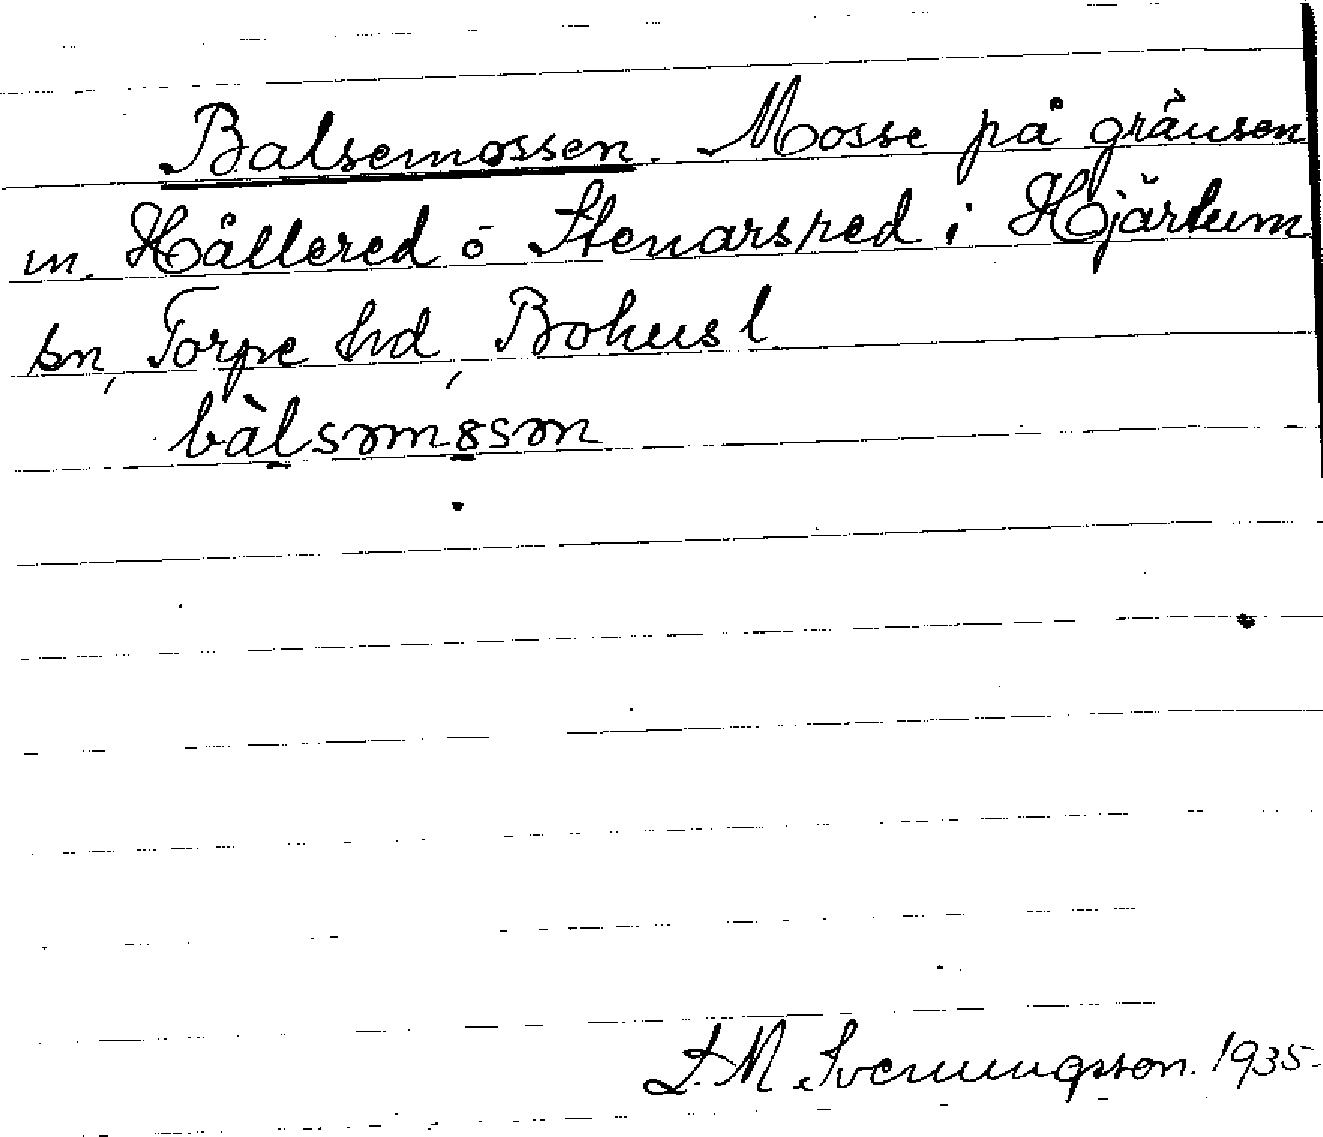 Balsemossen. Mosse på gränsen
m. Hållered ō Stenarsred i Hjärtum
sn, Torpe hd, Bohusl
bàlsəmɷsən
F. M. Svenningsson. 1935.